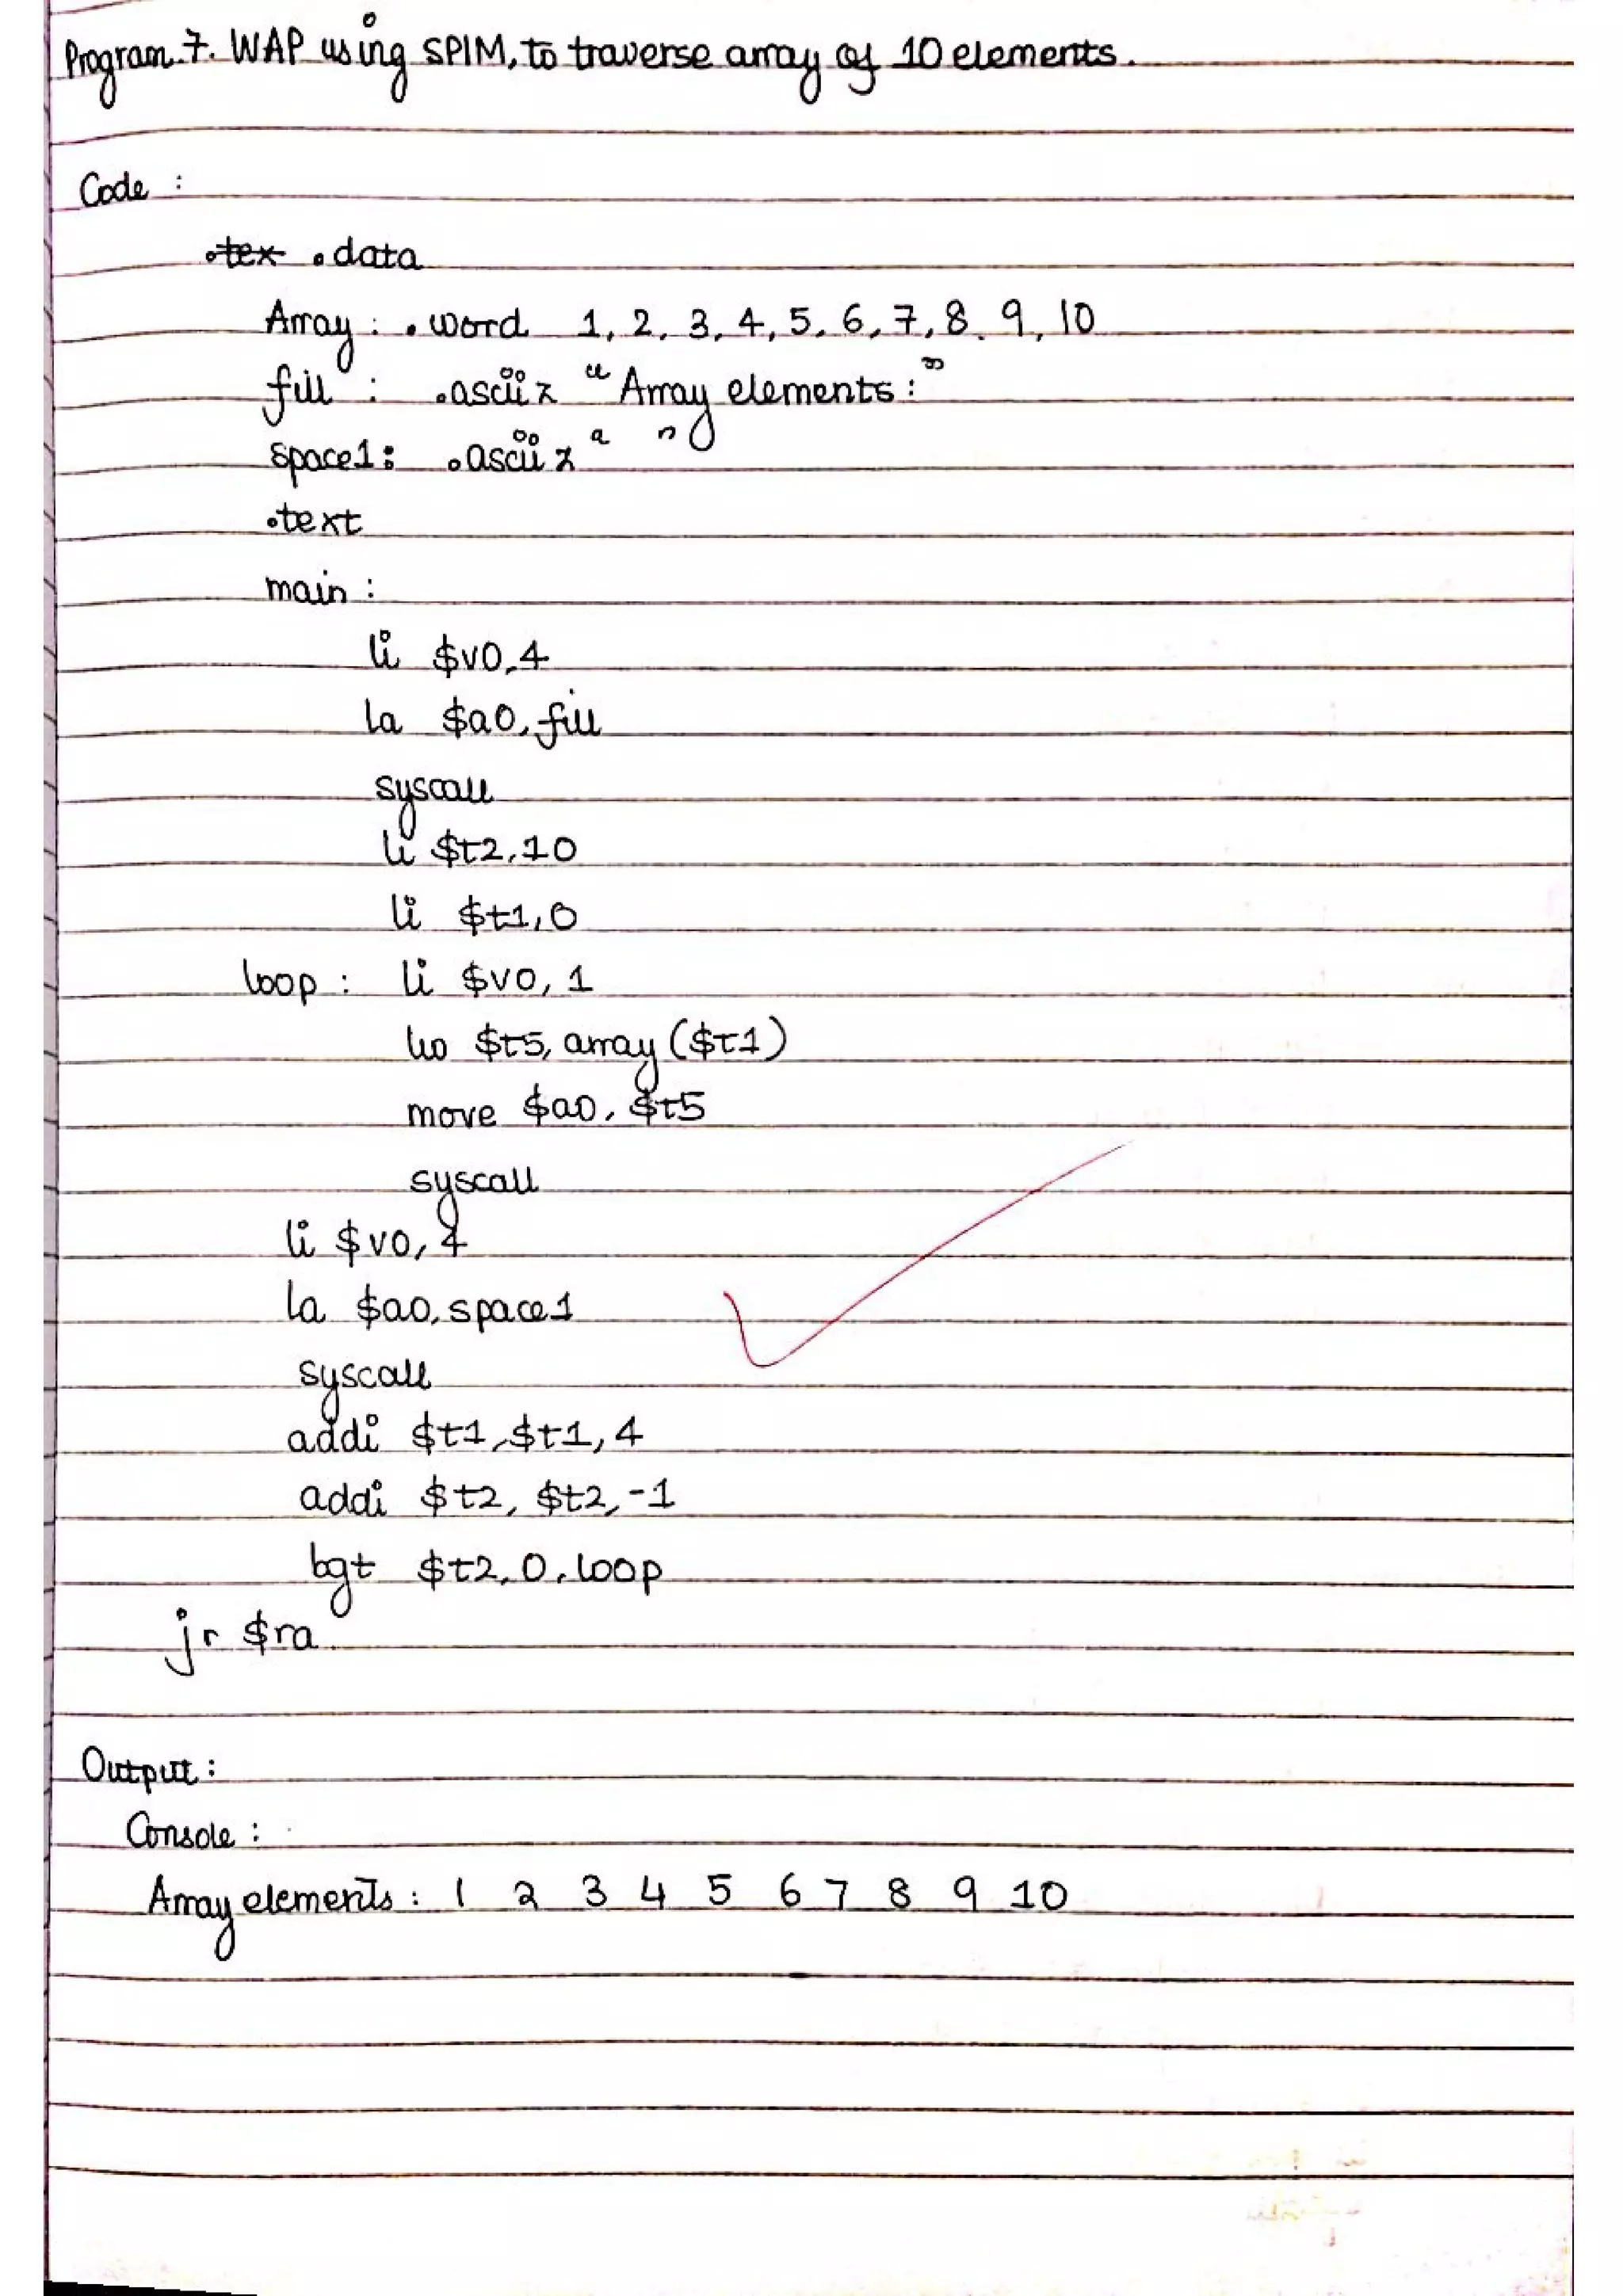 Program 7. WAP using SPIM, to traverse array of 10 elements.
Code :
.tex .data
Array : .word 1, 2, 3, 4, 5, 6, 7, 8, 9, 10
fill : .asciiz "Array elements :"
space1: .asciiz " "
.text
main :
li $v0,4
la $a0, fill
syscall
li $t2,10
li $t1,0
loop : li $v0, 1
lw $t5, array ($t1)
move $a0, $t5
syscall
li $v0, 4
la $a0, space1
syscall
addi $t1, $t1, 4
addi $t2, $t2, -1
bgt $t2, 0, loop
jr $ra
Output :
Console :
Array elements : 1 2 3 4 5 6 7 8 9 10